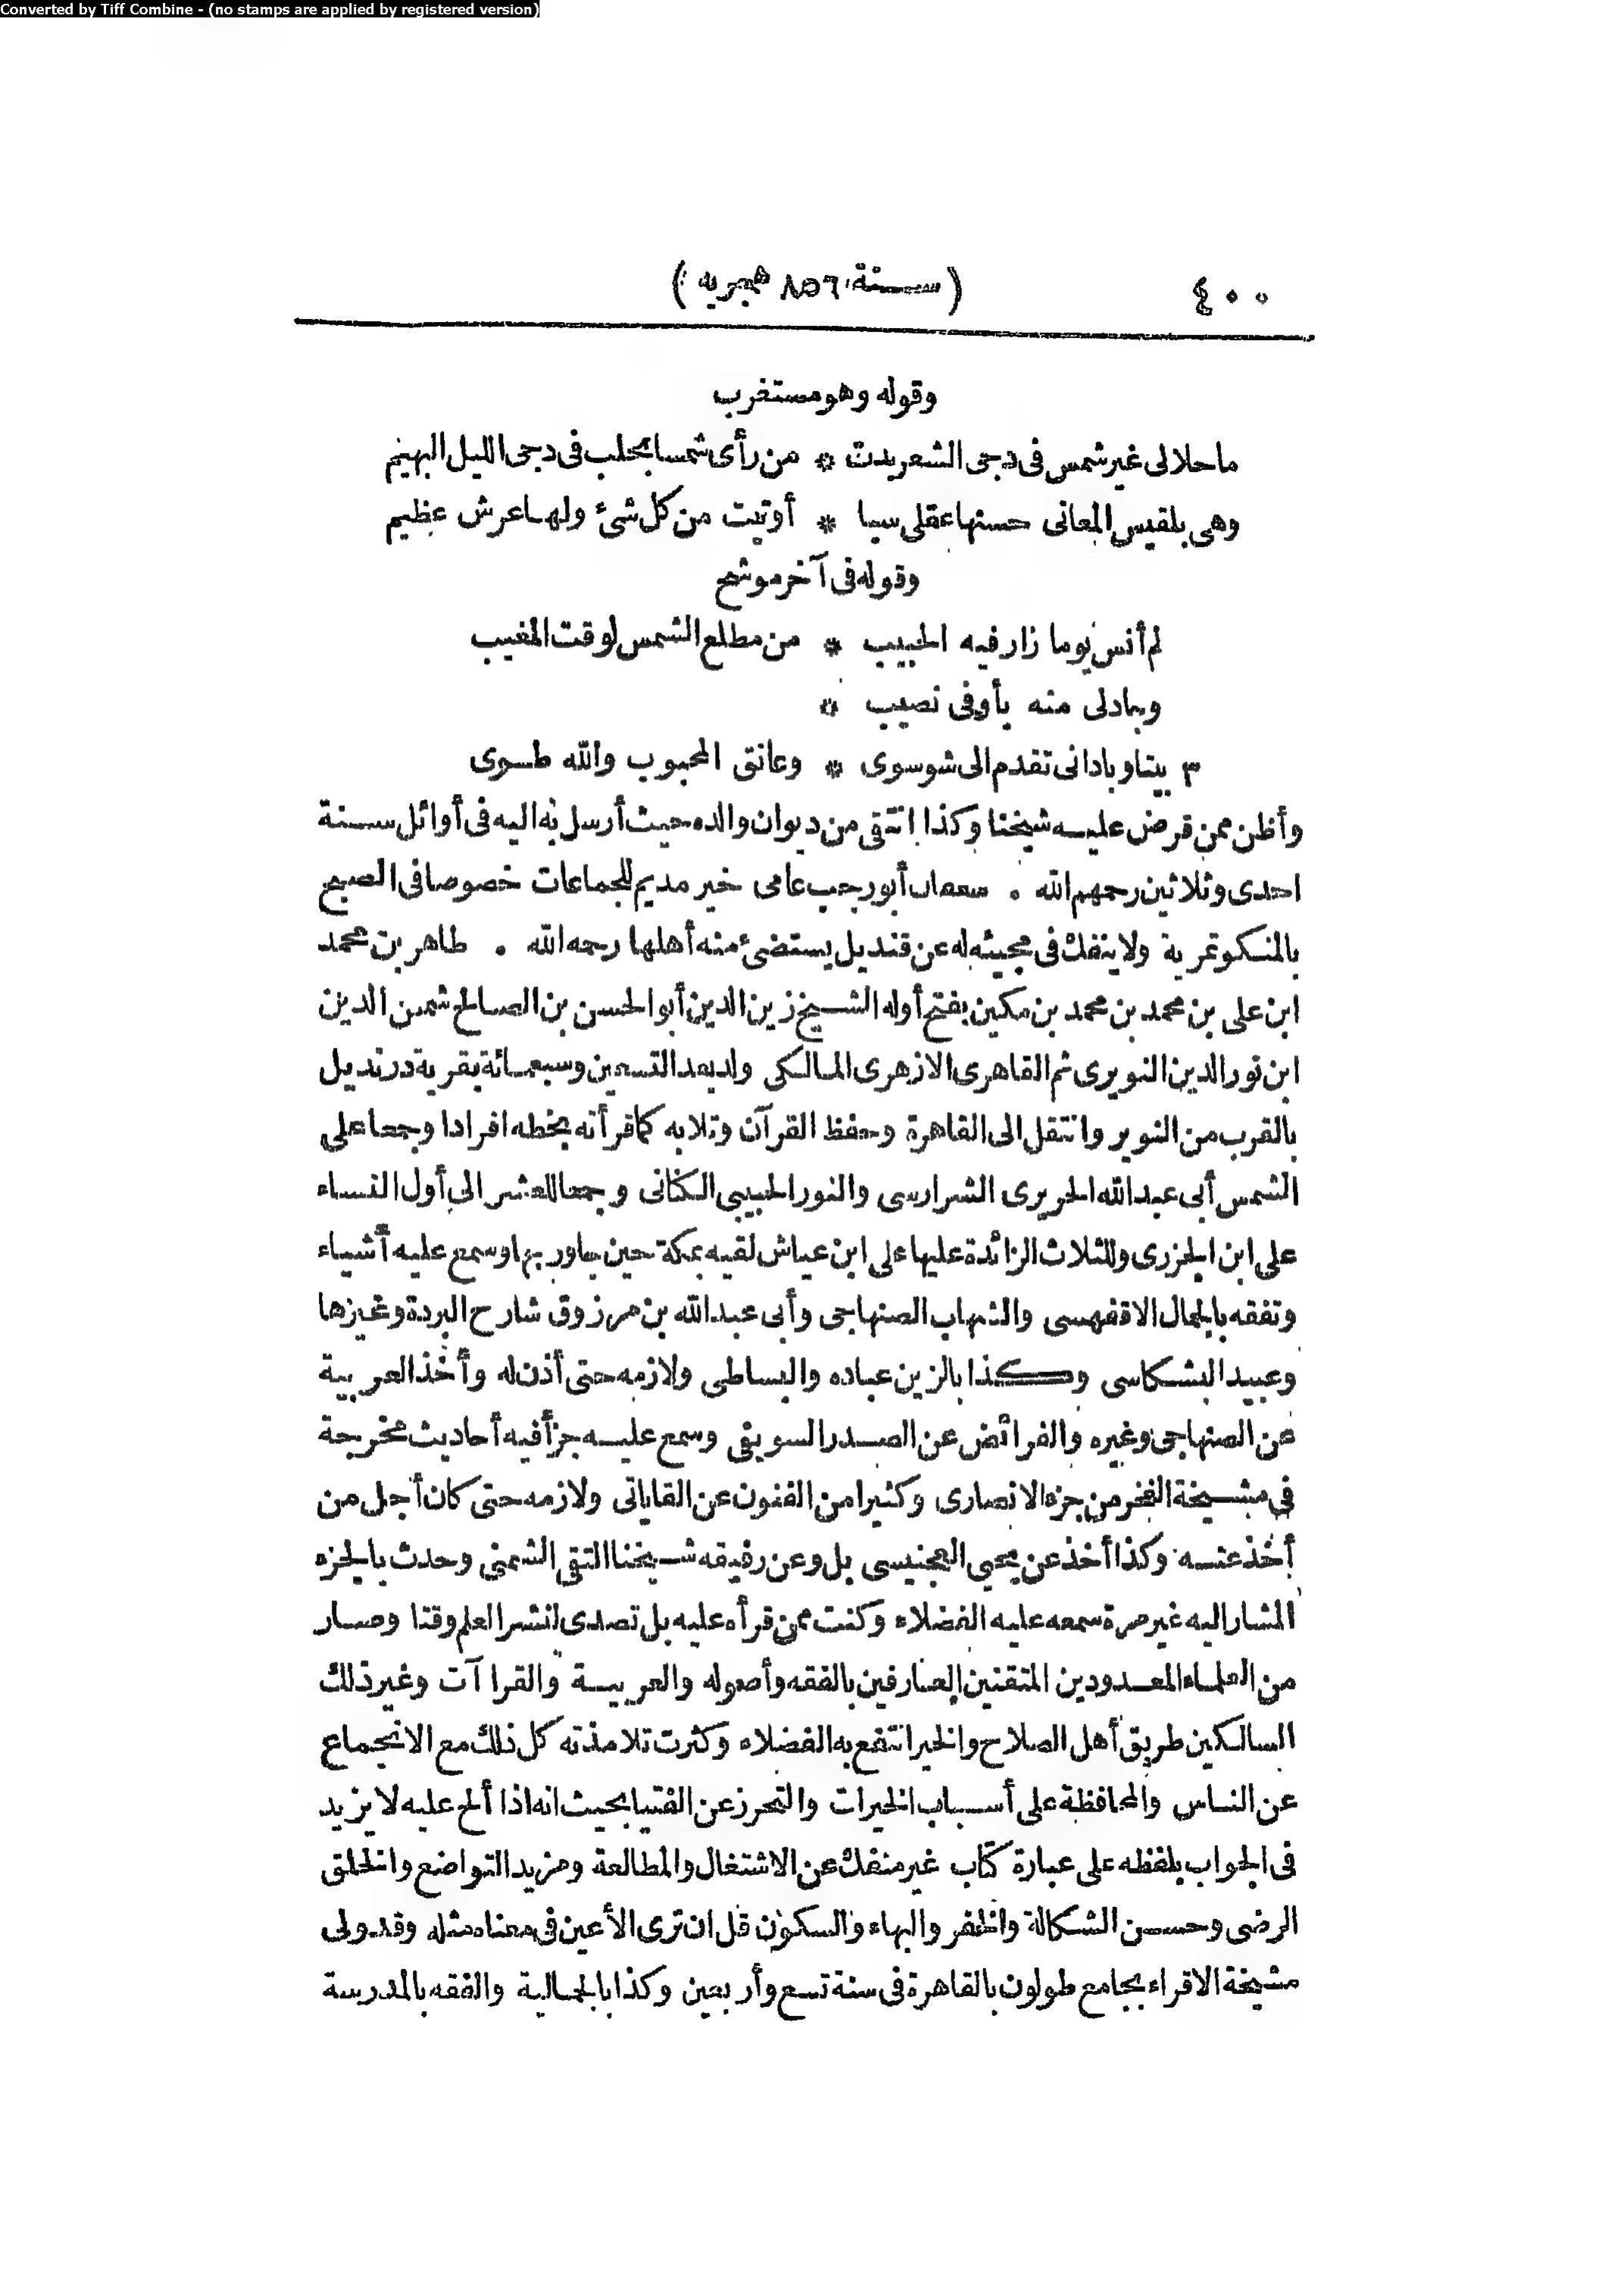 Converted by Tiff Combine - (no stamps are applied by registered version)
٤٠٠ (سنة ٨٥٦ هجريه)
وقوله وهو مستغرب
ما حلالى غير شمس فى دجى الشعر بدت * من رأى شمسا بحلب فى دجى الليل البهيم
وهى بلقيس المعانى حسنها عقلى سبا * أوتيت من كل شئ ولها عرش عظيم
وقوله فى آخر موشح
لم أنس يوما زار فيه الحبيب * من مطلع الشمس لوقت المغيب
وجادلى منه بأوفى نصيب *
٣ بيتا وبادانى تقدم الى شوسوى * وعانق المحبوب والله طوى
وأظن ممن قرض عليه شيخنا وكذا انتقى من ديوان والده حيث أرسل به اليه فى أوائل سنة
احدى وثلاثين رحمهم الله . أبو رجب عامى خير مديم للجماعات خصوصا فى الصبح
بالمنكوتمرية ولا ينفك فى مجيئه له عن قنديل يستضئ منه أهلها رحمه الله . طاهر بن محمد
ابن على بن محمد بن محمد بن مكين بفتح أوله الشيخ زين الدين أبو الحسن بن الصالح شمس الدين
ابن نور الدين النويرى ثم القاهرى الازهرى المالكى ولد بعد التسعين وسبعمائة بقرية درنديل
بالقرب من النوير وانتقل الى القاهرة وحفظ القرآن وتلا به كما قرأته بخطه افرادا وجمعا على
الشمس أبى عبد الله الحريرى الشرارسى والنور الحبيبى الكنانى وجمعا للعشر الى أول النساء
على ابن الجزرى وللثلاث الزائدة عليها على ابن عياش لقيه بمكة حين جاور بها وسمع عليه أشياء
وتفقه بالجمال الاقفهسى والشهاب الصنهاجى وأبى عبد الله بن مرزوق شارح البردة وغيرها
وعبيد البشكاسى وكذا بالزين عباده والبساطى ولازمه حتى أذن له وأخذ العربية
عن الصنهاجى وغيره والفرائض عن الصدر السويفى وسمع عليه جزأ فيه أحاديث مخرجة
فى مشيخة الفخر من جزء الانصارى وكثيرا من الفنون عن القاياتى ولازمه حتى كان أجل من
أخذ عنه وكذا أخذ عن يحيى العجنيسى بل وعن رفيقه شيخنا التقى الشمنى وحدث بالجزء
المشار اليه غير مرة سمعه عليه الفضلاء وكنت ممن قرأه عليه بل تصدى لنشر العلم وقتا وصار
من العلماء المعدودين المتقنين العارفين بالفقه وأصوله والعربية والقراآت وغير ذلك
السالكين طريق أهل الصلاح والخير انتفع به الفضلاء وكثرت تلامذته كل ذلك مع الانجماع
عن الناس والمحافظة على أسباب الخيرات والتحرز عن الفتيا بحيث انه اذا ألح عليه لا يزيد
فى الجواب بلفظه على عبارة كتاب غير منفك عن الاشتغال والمطالعة ومزيد التواضع والخلق
الرضى وحسن الشكالة والخفر والبهاء والسكون قل ان ترى الأعين فى معناه مثله وقد ولى
مشيخة الاقراء بجامع طولون بالقاهرة فى سنة تسع وأربعين وكذا بالجمالية والفقه بالمدرسة